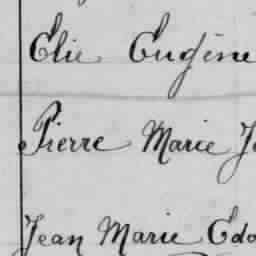 Elie Eugène
Pierre Marie J
Jean Marie Edo